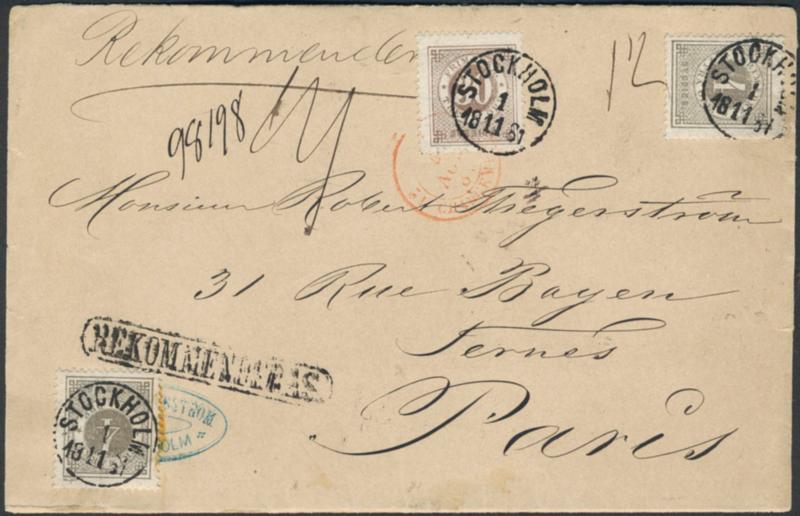 Rekommenderas
98198
STOCKHOLM
1
18 11 81
STOCKHOLM
1
18 11 81
Monsieur Robert Fliegerström
31 Rue Bayen
Ternes
Paris
REKOMMENDERAS
STOCKHOLM
1
18 11 81